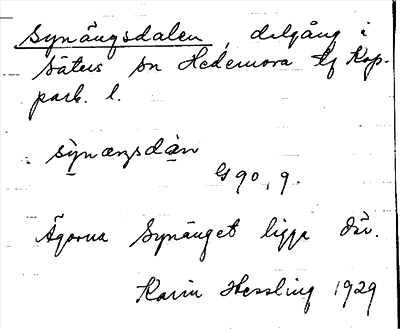 Synängsdalen, delgång i
Säters sn Hedemora tg Kop-
parb. l.
synæŋsdàn
G 90, 9.
Ägorna Synänget ligga där.
Karin Hessling 1929